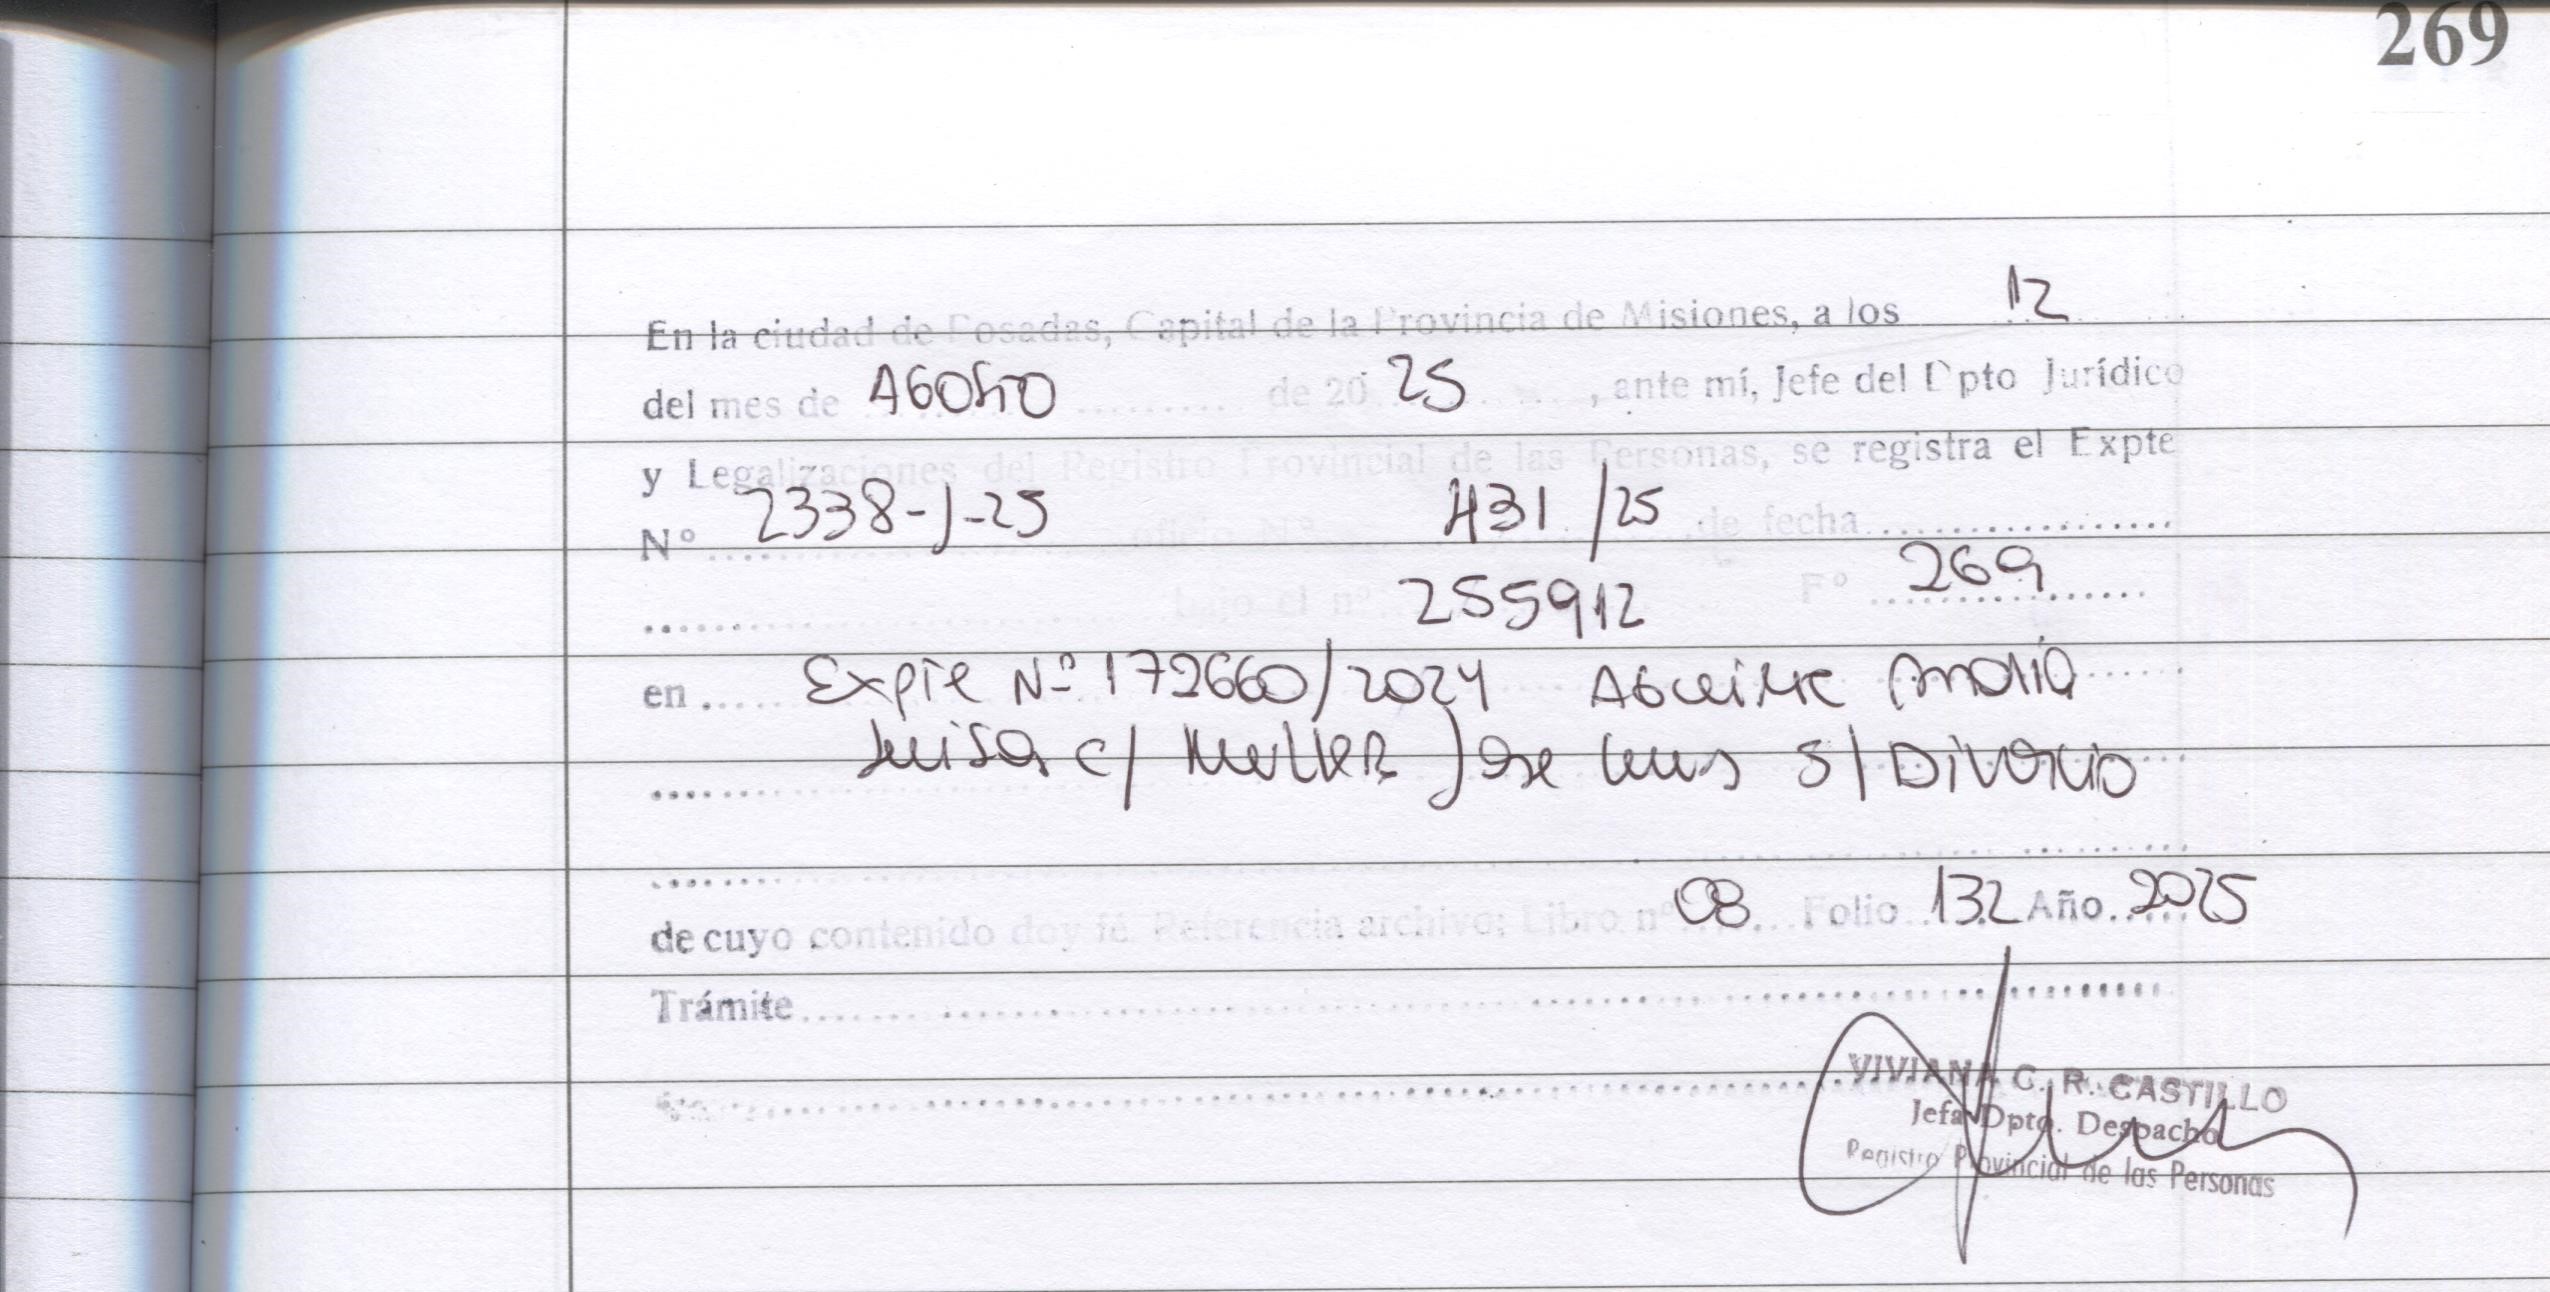 269
En la ciudad de Posadas, Capital de la Provincia de Misiones, a los 12
del mes de AGOSTO de 20 25, ante mí, Jefe del Dpto Jurídico
y Legalizaciones del Registro Provincial de las Personas, se registra el Expte
N° 2338-J-25 oficio N° 431/25 de fecha
bajo el n° 255912 F° 269
en Expte Nº 172660/2024 Aguirre Analia
Luisa c/ Muller Jose Luis S/ Divorcio
de cuyo contenido doy fé. Referencia archivo; Libro nº 08 Folio 132 Año 2025
Trámite
VIVIANA C. R. CASTILLO
Jefa Dpto. Despacho
Registro Provincial de las Personas